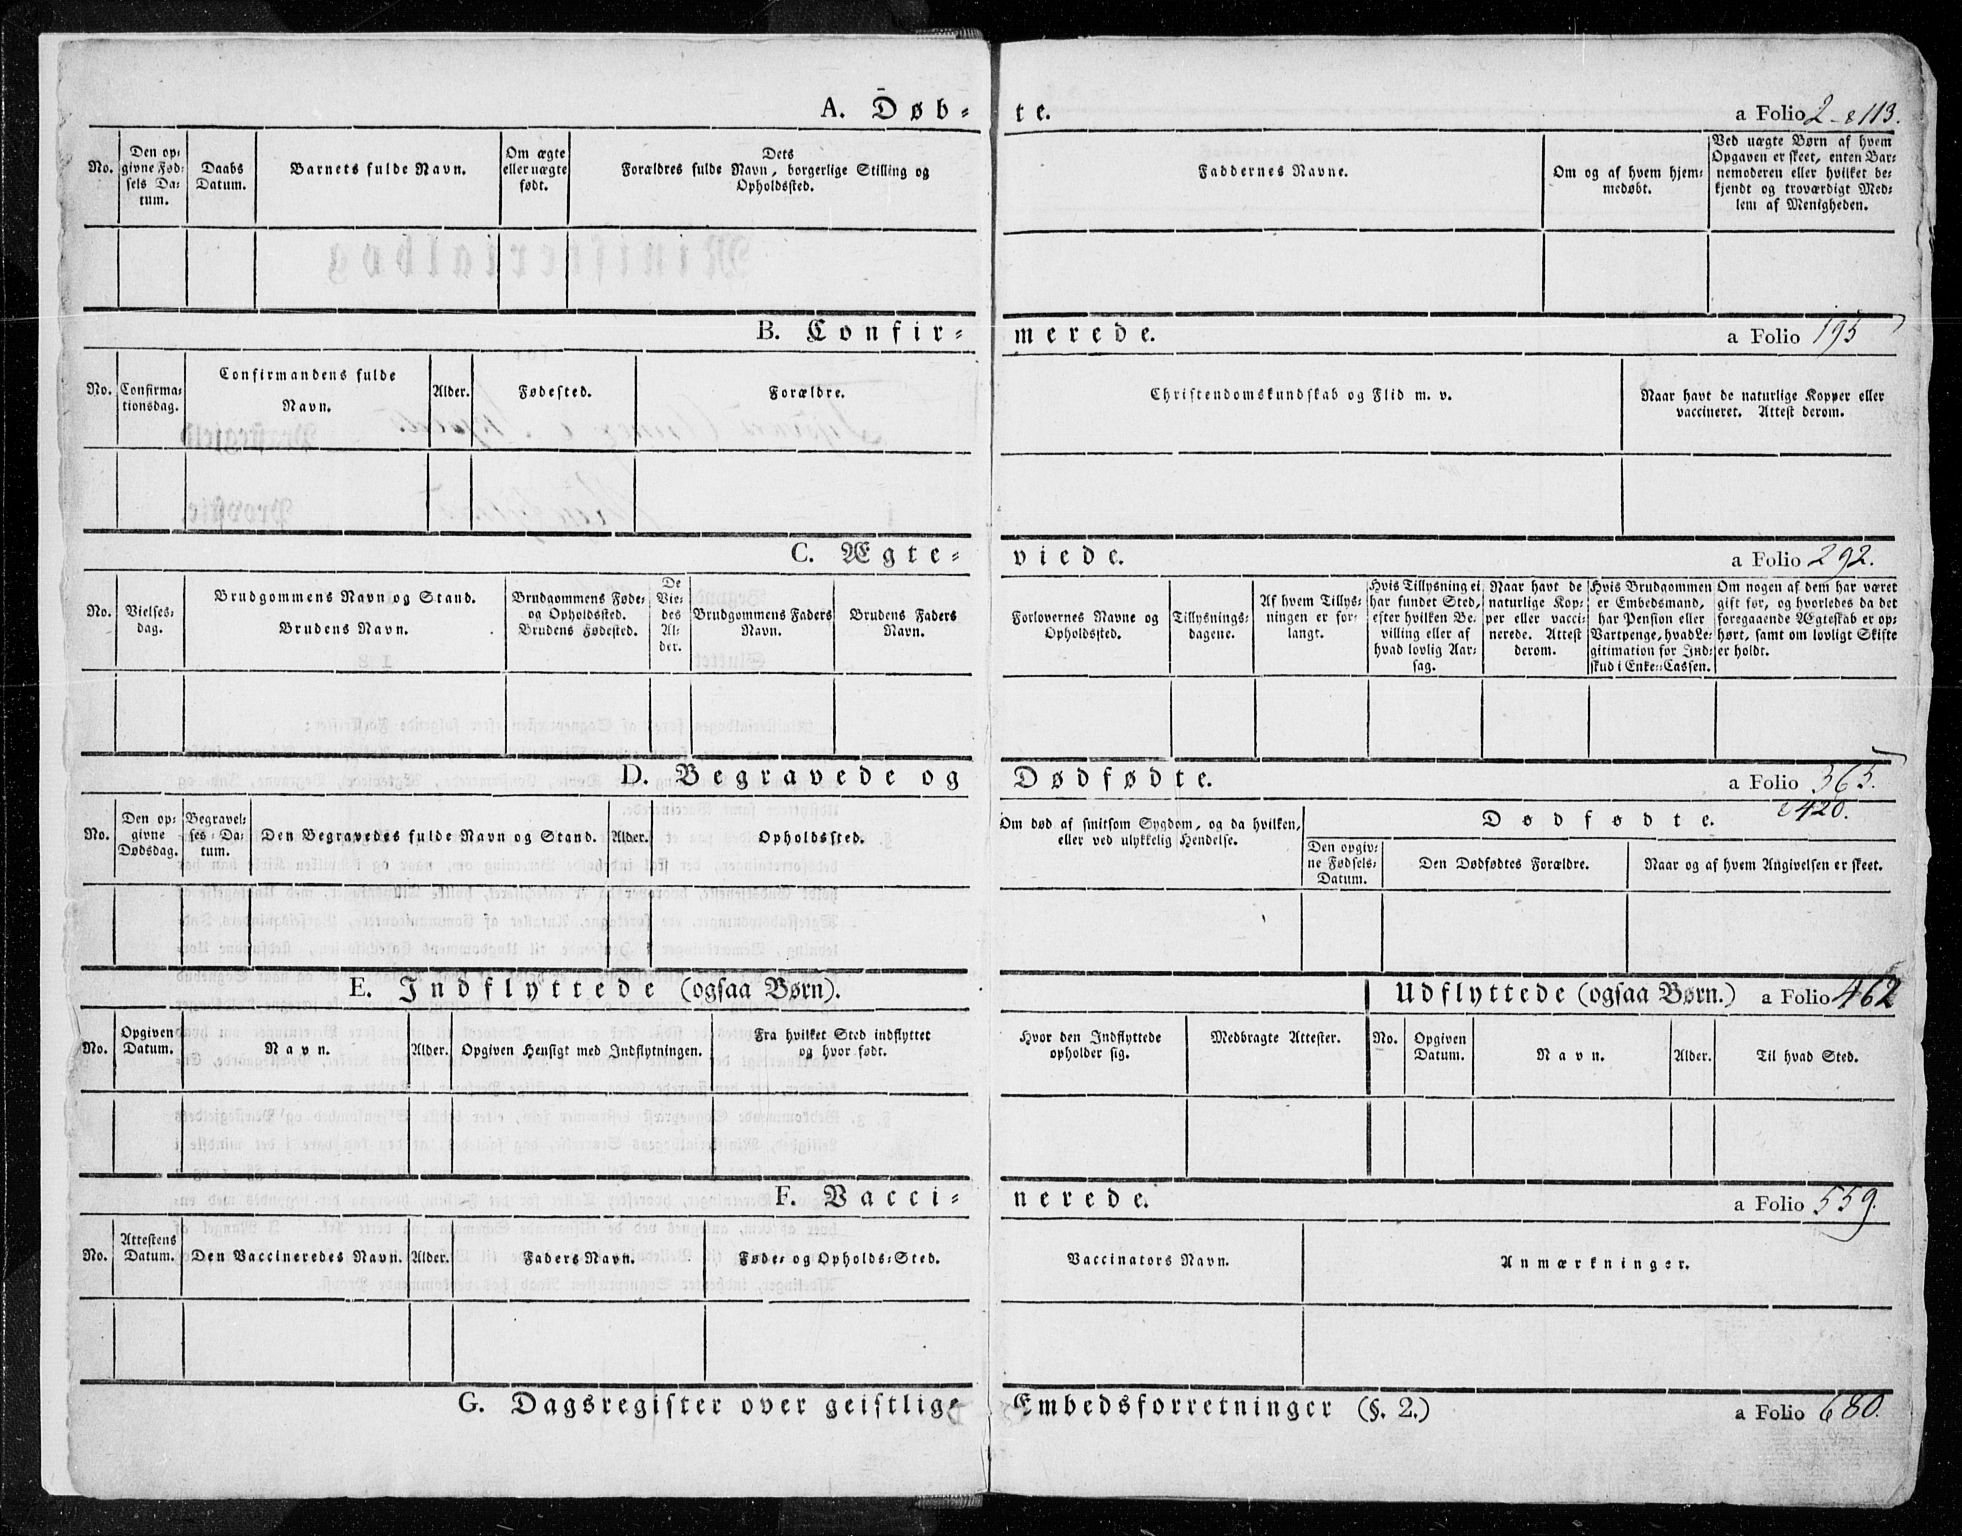 A. Døbte. a Folio 2 - & 113.
No.
Den opgivne Fødsels Datum.
Daabs Datum.
Barnets fulde Navn.
Om ægte eller uægte født.
Dets Forældres fulde Navn, borgerlige Stilling og Opholdssted.
Faddernes Navne.
Om og af hvem hjemmedøbt.
Ved uægte Børn af hvem Opgaven er skeet, enten Barnemoderen eller hvilket bekjendt og troværdigt Medlem af Menigheden.
B. Confirmerede. a Folio 195
No.
Confirmationsdag.
Confirmandens fulde Navn.
Alder.
Fødested.
Forældre.
Christendomskundskab og Flid m. v.
Naar havt de naturlige Kopper eller vaccineret. Attest derom.
C. Ægteviede. a Folio 292.
No.
Vielsesdag.
Brudgommens Navn og Stand.
Brudens Navn.
Brudgommens Føde- og Opholdssted. Brudens Fødested.
De Viedes Alder.
Brudgommens Faders Navn.
Brudens Faders Navn.
Forlovernes Navne og Opholdssted.
Tillysningsdagene.
Af hvem Tillysningen er forlangt.
Hvis Tillysning ei har fundet Sted, efter hvilken Bevilling eller af hvad lovlig Aarsag.
Naar havt de naturlige Kopper eller vaccinerede. Attest derom.
Hvis Brudgommen er Embedsmand, har Pension eller Vartpenge, hvad Legitimation for Indskud i Enke-Cassen.
Om nogen af dem har været gift før, og hvorledes da det foregaaende Ægteskab er ophørt, samt om lovligt Skifte er holdt.
D. Begravede og Dødfødte. a Folio 365.
& 420.
No.
Den opgivne Dødsdag.
Begravelses-Datum.
Den Begravedes fulde Navn og Stand.
Alder.
Opholdssted.
Om død af smitsom Sygdom, og da hvilken, eller ved ulykkelig Hendelse.
Dødfødte.
Den opgivne Fødsels-Datum.
Den Dødfødtes Forældre.
Naar og af hvem Angivelsen er skeet.
E. Indflyttede (ogsaa Børn). Udflyttede (ogsaa Børn.) a Folio 462
No.
Opgiven Datum.
Navn.
Alder.
Opgiven Hensigt med Indflytningen.
Fra hvilket Sted indflyttet og hvor født.
Hvor den Indflyttede opholder sig.
Medbragte Attester.
No.
Opgiven Datum.
Navn.
Alder.
Til hvad Sted.
F. Vaccinerede. a Folio 559.
No.
Attestens Datum.
Den Vaccineredes Navn.
Alder.
Faders Navn.
Føde- og Opholds-Sted.
Vaccinators Navn.
Anmærkninger.
G. Dagsregister over geistlige Embedsforretninger (§. 2.) a Folio 680.